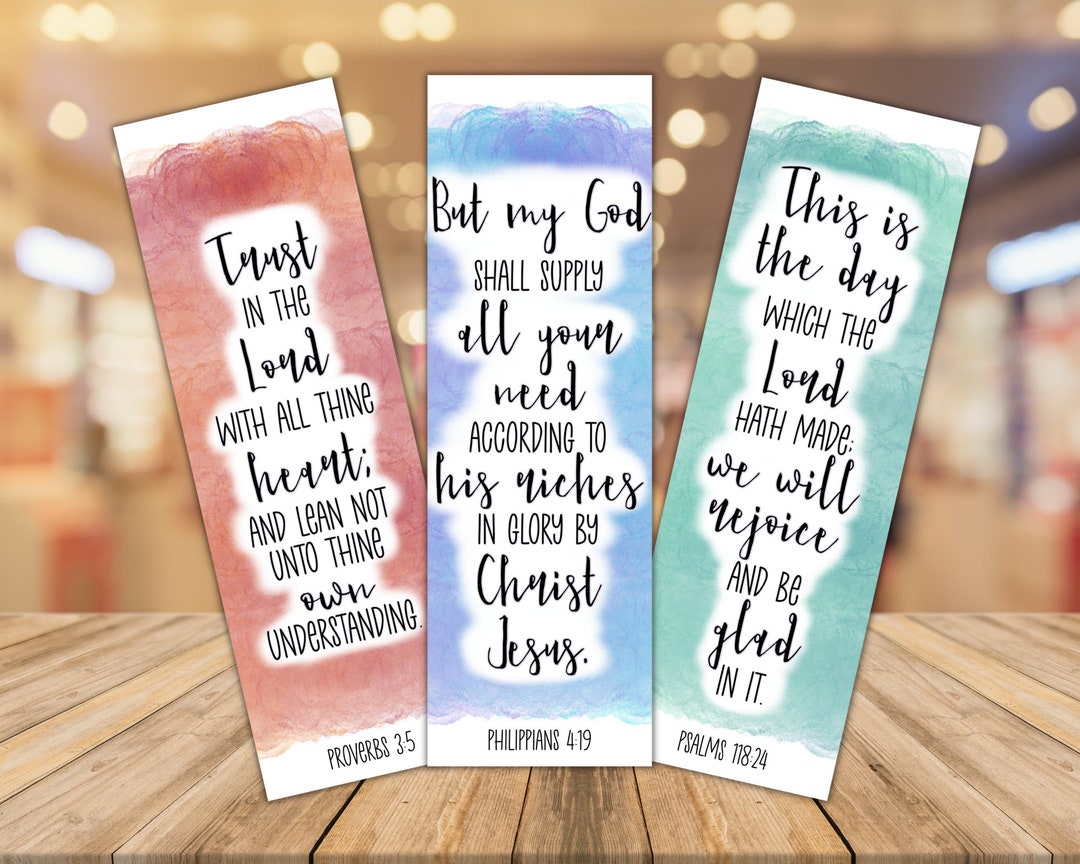 Trust
IN THE
Lord
WITH ALL THINE
heart;
AND LEAN NOT
UNTO THINE
own
UNDERSTANDING.
PROVERBS 3:5
But my God
SHALL SUPPLY
all your
need
ACCORDING TO
his riches
IN GLORY BY
Christ
Jesus.
PHILIPPIANS 4:19
This is
the day
WHICH THE
Lord
HATH MADE;
we will
rejoice
AND BE
glad
IN IT.
PSALMS 118:24